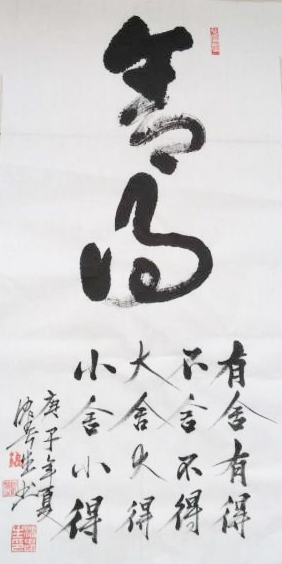 舍得
有舍有得
不舍不得
大舍大得
小舍小得
庚子年夏